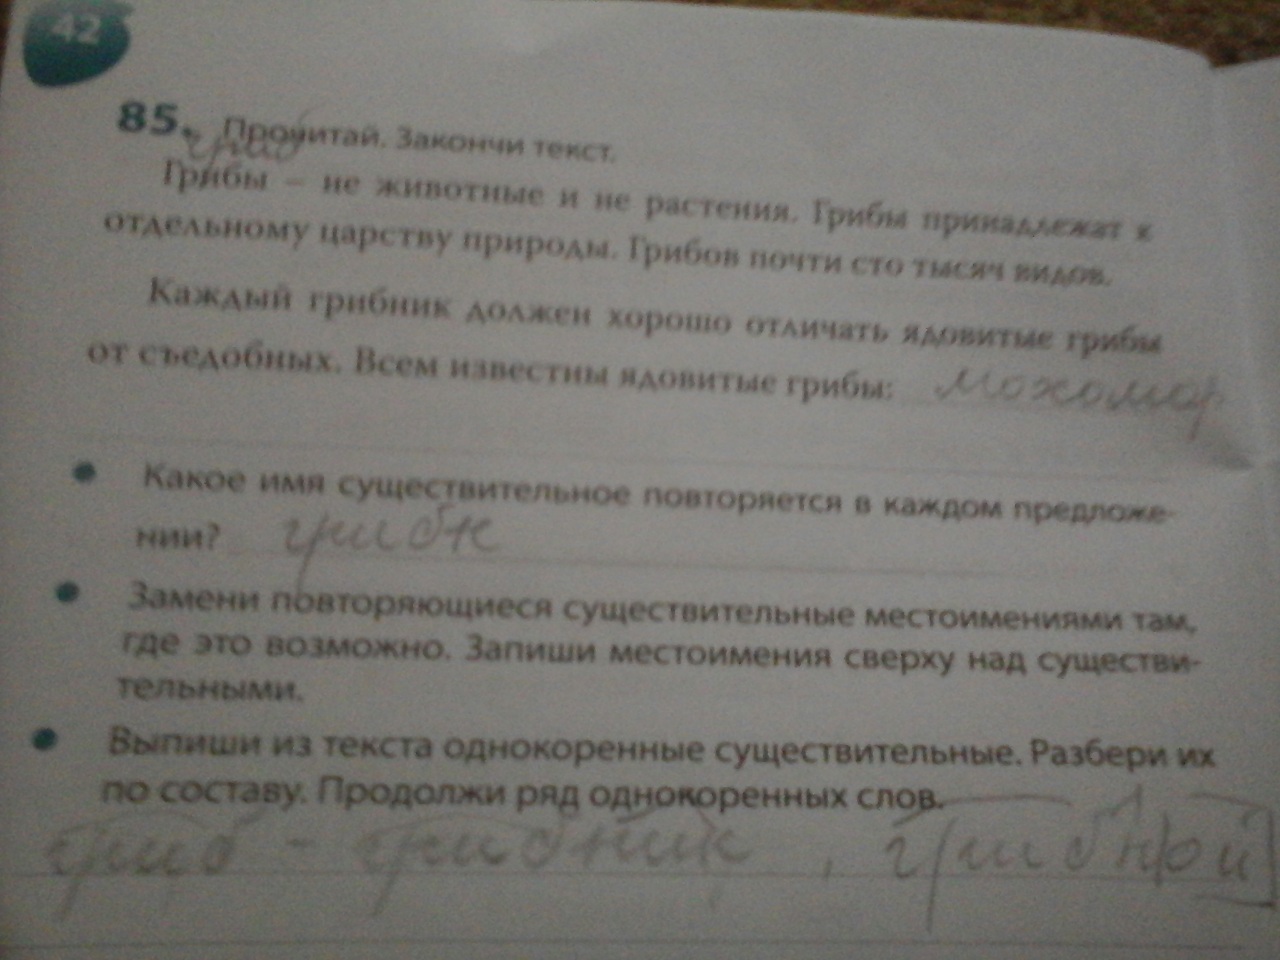 42
85. Прочитай. Закончи текст.
гриб
Грибы – не животные и не растения. Грибы принадлежат к
отдельному царству природы. Грибов почти сто тысяч видов.
Каждый грибник должен хорошо отличать ядовитые грибы
от съедобных. Всем известны ядовитые грибы: мохомор
Какое имя существительное повторяется в каждом предложе-
нии?
Замени повторяющиеся существительные местоимениями там,
где это возможно. Запиши местоимения сверху над существи-
тельными.
Выпиши из текста однокоренные существительные. Разбери их
по составу. Продолжи ряд однокоренных слов.
гриб - грибник, грибной